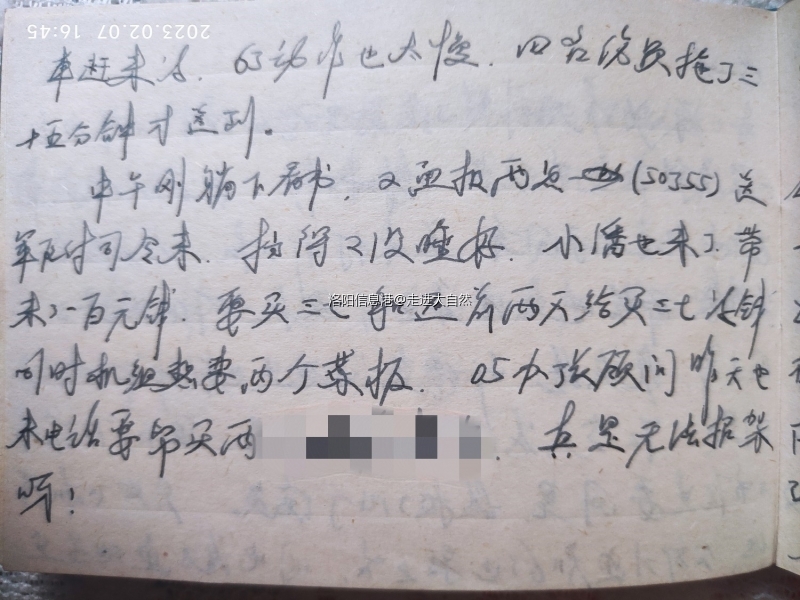 2023.02.07 16:45
车赶来了. 65动作也太慢. 四名伤员拖了三
十五分钟才送到。
中午刚躺下看书, 又通报两点 (50355) 送
军区付司令来. 搞得又没睡好. 小潘也来了. 带
来了一百元钱. 要买三七和还前两天给买三七的钱
同时机组想要两个菜板. 05办张顾问昨天也
来电话要帮买两 . 真是无法招架
呀!
洛阳信息港@走进大自然